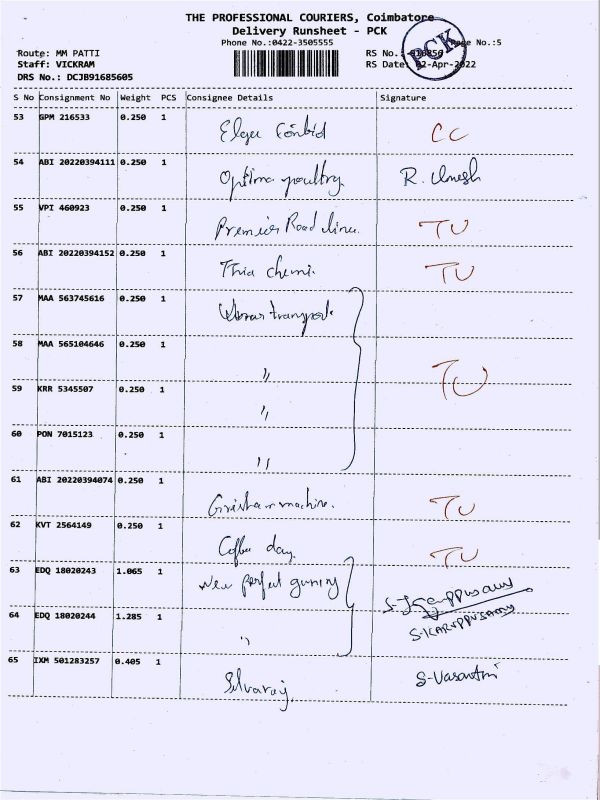 THE PROFESSIONAL COURIERS, Coimbatore
Delivery Runsheet - PCK
Phone No.:0422-3505555
Page No.:5
Route: MM PATTI
RS No.:
PCK
Staff: VICKRAM
RS Date: 02-Apr-2022
DRS No.: DCJB91685605
S No Consignment No Weight PCS Consignee Details Signature
53 GPM 216533 0.250 1 CC
54 ABI 20220394111 0.250 1 Optima poultry. R. Umesh
55 VPI 460923 0.250 1 Premier Road lines. TU
56 ABI 20220394152 0.250 1 Thia chemi. TU
57 MAA 563745616 0.250 1 transport
58 MAA 565104646 0.250 1 " TU
59 KRR 5345507 0.250 1 "
60 PON 7015123 0.250 1 "
61 ABI 20220394074 0.250 1 machine. TU
62 KVT 2564149 0.250 1 Coffee day. TU
63 EDQ 18020243 1.065 1 New perfect gunny S-Karuppusamy
64 EDQ 18020244 1.285 1 " S-KARUPPUSAMY
65 IXM 501283257 0.405 1 Silvaraj. S-Vasanthi